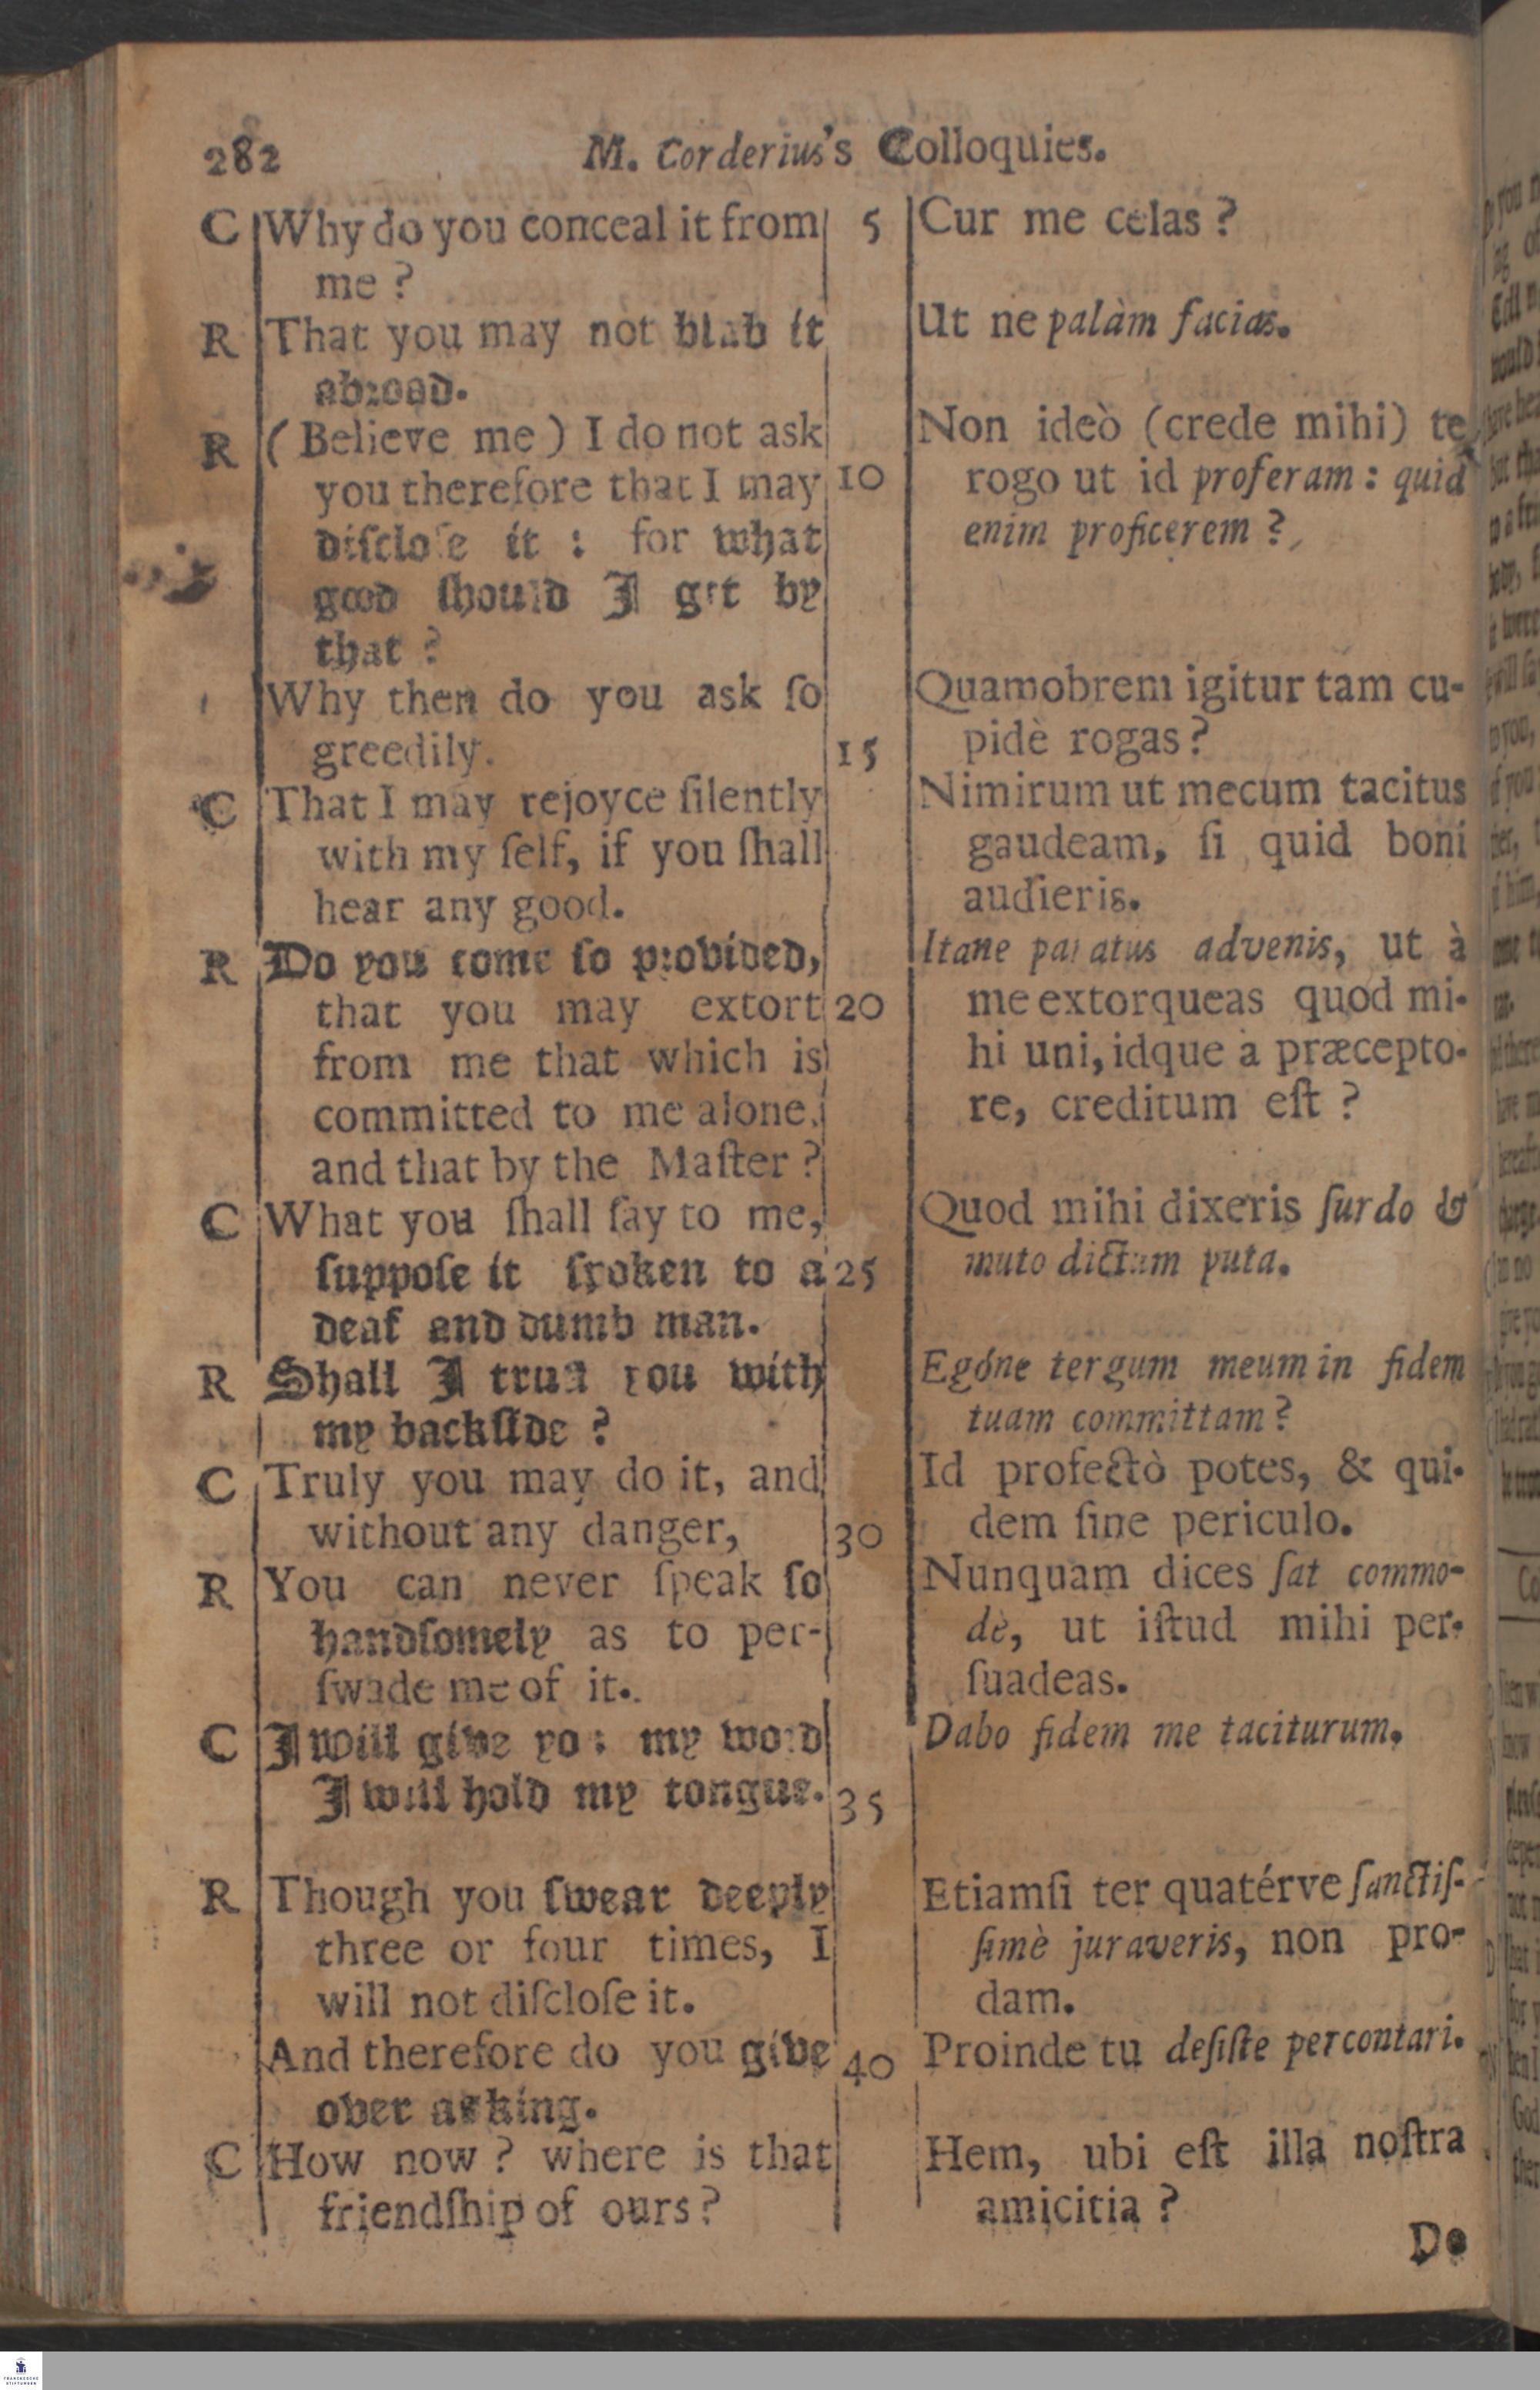 282 M. Corderius's Colloquies.
C Why do you conceal it from
me ?
R That you may not blab it
abroad.
R ( Believe me ) I do not ask
you therefore that I may
diſcloſe it : for what
good ſhould I get by
that ?
Why then do you ask ſo
greedily.
C That I may rejoyce ſilently
with my ſelf, if you ſhall
hear any good.
R Do you come ſo provided,
that you may extort
from me that which is
committed to me alone,
and that by the Maſter ?
C What you ſhall ſay to me,
ſuppoſe it ſpoken to a
deaf and dumb man.
R Shall I truſt you with
my backſide ?
C Truly you may do it, and
without any danger,
R You can never ſpeak ſo
handſomely as to per-
ſwade me of it.
C I will give you my word
I will hold my tongue.
R Though you ſwear deeply
three or four times, I
will not diſcloſe it.
And therefore do you give
over asking.
C How now ? where is that
friendſhip of ours ?
5
10
15
20
25
30
35
40
Cur me celas ?
Ut ne palàm facias.
Non ideò (crede mihi) te
rogo ut id proferam : quid
enim proficerem ?
Quamobrem igitur tam cu-
pidè rogas ?
Nimirum ut mecum tacitus
gaudeam, ſi quid boni
audieris.
Itane paratus advenis, ut à
me extorqueas quod mi-
hi uni, idque à præcepto-
re, creditum eſt ?
Quod mihi dixeris ſurdo &
muto dictum puta.
Egóne tergum meum in fidem
tuam committam ?
Id profectò potes, & qui-
dem ſine periculo.
Nunquam dices ſat commo-
dè, ut iſtud mihi per-
ſuadeas.
Dabo fidem me taciturum.
Etiamſi ter quatérve ſanctiſ-
ſimè juraveris, non pro-
dam.
Proinde tu deſiſte percontari.
Hem, ubi eſt illa noſtra
amicitia ?
Do
FRANCKESCHE
STIFTUNGEN